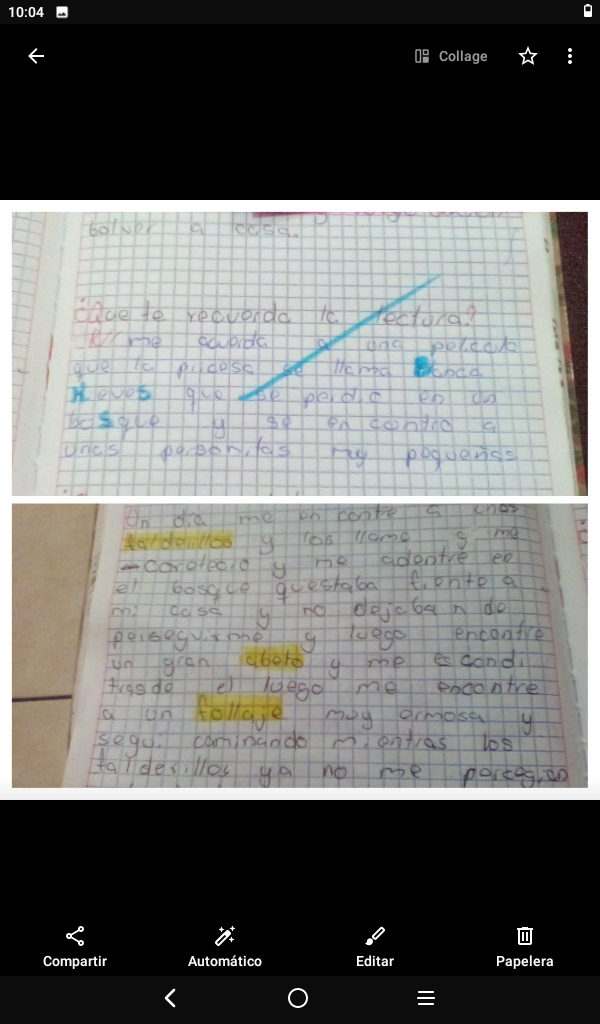 10:04
Collage
bolver a casa.
¿Que te recuerda la lectura?
R/ me acuerda a una pelicula
que la pricesa se llama Blanca
Nieves que se perdio en un
bosque y se en contro a
unas personitas my pequeñas
Un dia me en contre a unos
falderillos y los llame y me
y me adentre en
el bosque questaba frente a
mi casa y no dejaba n de
perseguirme y luego encontre
un gran abeto y me escondi
trasde el luego me encontre
a un follaje muy ermosa y
segui caminando mientras los
falderillos ya no me persegian
Compartir
Automático
Editar
Papelera